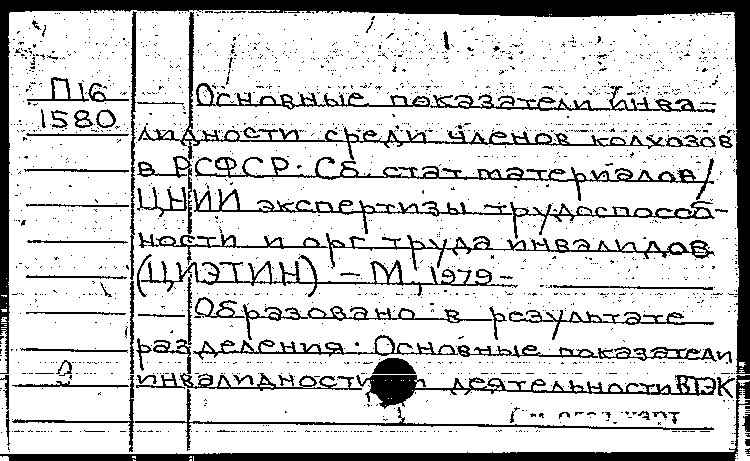 П16
1580
Основные показатели инва-
лидности среди членов колхозов
в РСФСР. Сб. стат материалов/
ЦНИИ экспертизы трудоспособ-
ности и орг труда инвалидов
(ЦИЭТИН) – М., 1979 –
Образовано в результате
разделения: Основные показатели
инвалидности и деятельности ВТЭК